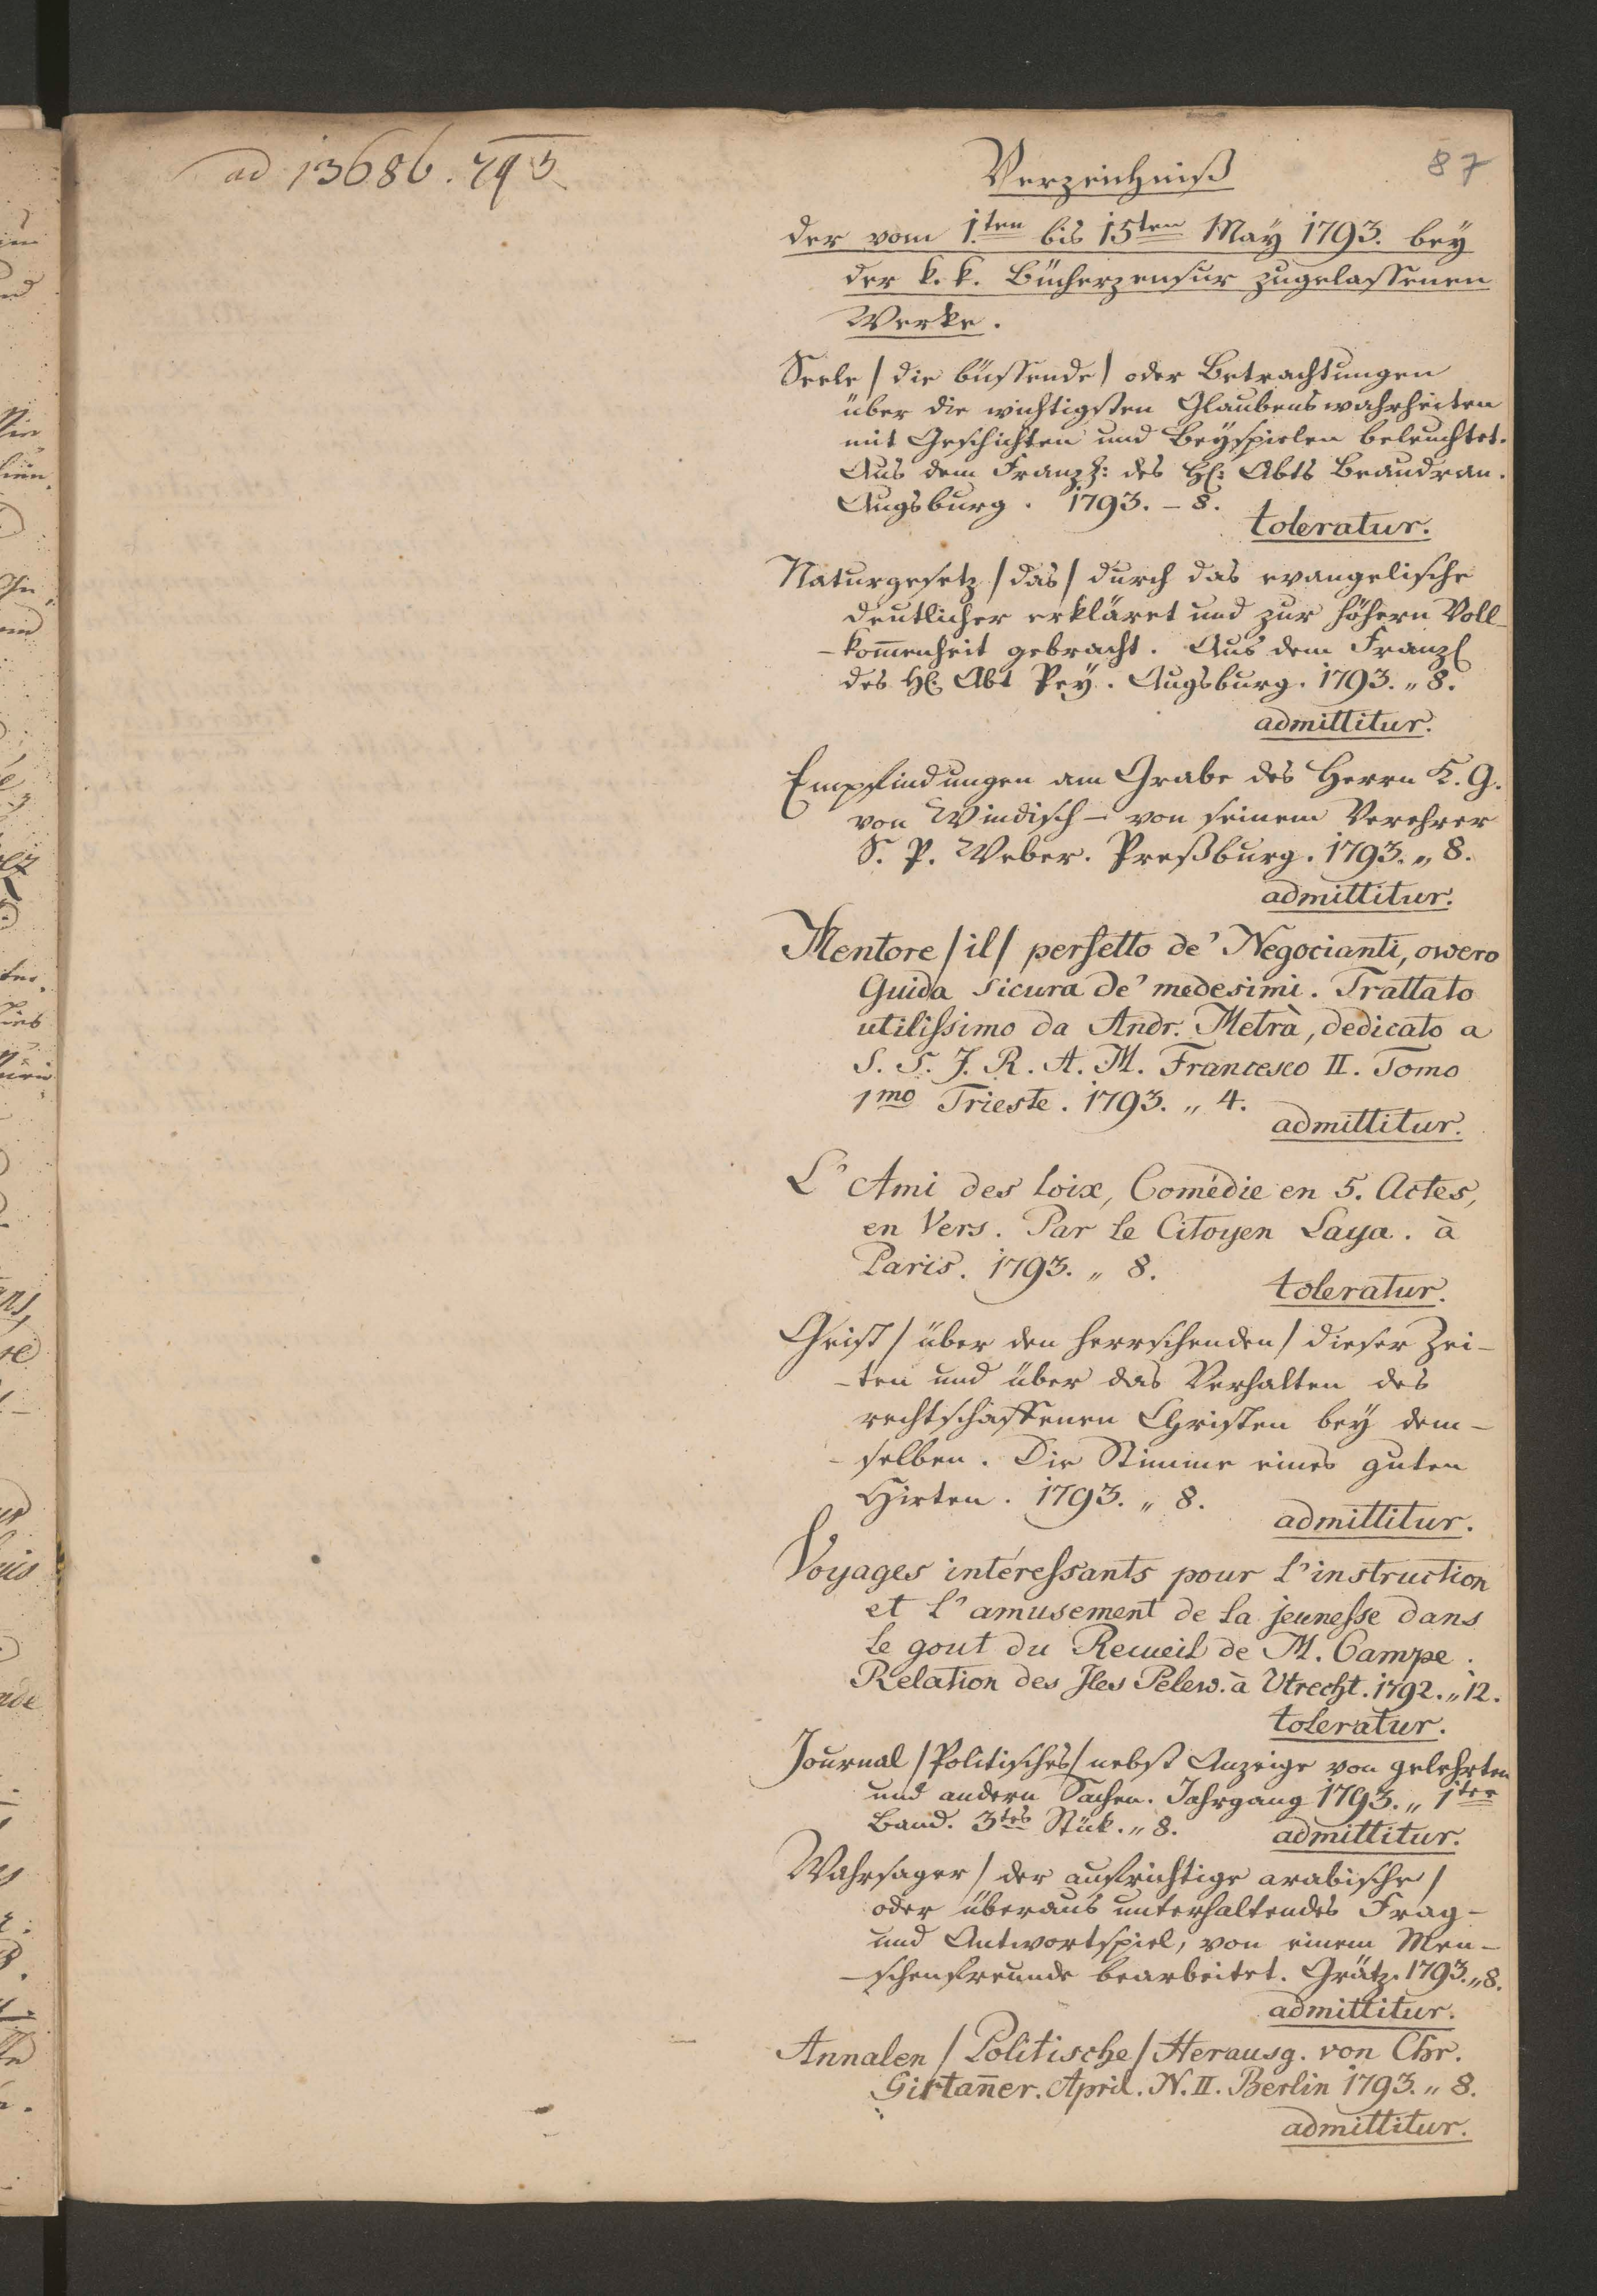 ad 13686. 793
87
Verzeichniß
der vom 1.ten bis 15ten May 1793. bey
der k. k. Bücherzensur zugelassenen
Werke.
Seele / die büssende / oder Betrachtungen
über die wichtigsten Glaubenswahrheiten
mit Geschichten und Beyspielen beleuchtet.
Aus dem Franzs: des H: Abts Beaudran.
Augsburg. 1793. - 8.
toleratur.
Naturgesetz / das / durch das evangelische
deutlicher erkläret und zur höhern Voll-
-kom̄enheit gebracht. Aus dem Franz
des H: Abt Pey. Augsburg. 1793. „ 8.
admittitur.
Empfindungen am Grabe des Herrn K. G.
von Windisch - von seinem Verehrer
S. P. Weber. Preßburg. 1793. „ 8.
admittitur.
Mentore / il / perfetto de' Negocianti, ovvero
Guida sicura de' medesimi. Trattato
utilissimo da Andr. Metrà, dedicato a
S. S. J. R. A. M. Francesco II. Tomo
1mo Trieste. 1793. „ 4.
admittitur.
L'Ami des loix, Comédie en 5. Actes,
en Vers. Par le Citoyen Laya. à
Paris. 1793. „ 8.
toleratur.
Geist / über den herrschenden / dieser Zei-
-ten und über das Verhalten des
rechtschaffenen Christen bey dem-
-selben. Die Stimme eines guten
Hirten. 1793. „ 8.
admittitur.
Voyages intéressants pour l'instruction
et l'amusement de la jeunesse dans
le gout du Recueil de M. Campe.
Relation des Jles Pelew. à Utrecht. 1792. „ 12.
toleratur.
Journal / Politisches / nebst Anzeige von gelehrten
und andern Sachen. Jahrgang 1793. „ 1ter
Band. 3tes Stück. „ 8.
admittitur.
Wahrsager / der aufrichtige arabische /
oder überaus unterhaltendes Frag-
und Antwortspiel, von einem Men-
-schenfreunde bearbeitet. Grätz. 1793. „ 8.
admittitur.
Annalen / Politische / Herausg. von Chr.
Girtan̄er. April. N. II. Berlin 1793. „ 8.
admittitur.